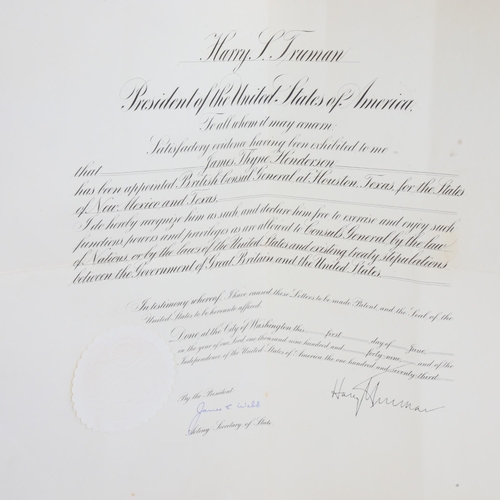 Harry S. Truman
President of the United States of America,
To all whom it may concern
Satisfactory evidence having been exhibited to me
that James Thyne Henderson
has been appointed British Consul General at Houston, Texas, for the States
of New Mexico and Texas,
I do hereby recognize him as such and declare him free to exercise and enjoy such
functions powers and privileges as are allowed to Consuls General by the law
of Nations or by the laws of the United States and existing treaty stipulations
between the Government of Great Britain and the United States.
In testimony whereof, I have caused these Letters to be made Patent, and the Seal of the
United States to be hereunto affixed.
Done at the City of Washington this first day of June,
in the year of our Lord one thousand nine hundred and forty-nine, and of the
Independence of the United States of America, the one hundred and seventy-third.
By the President
James E Webb
Harry S Truman
Acting Secretary of State